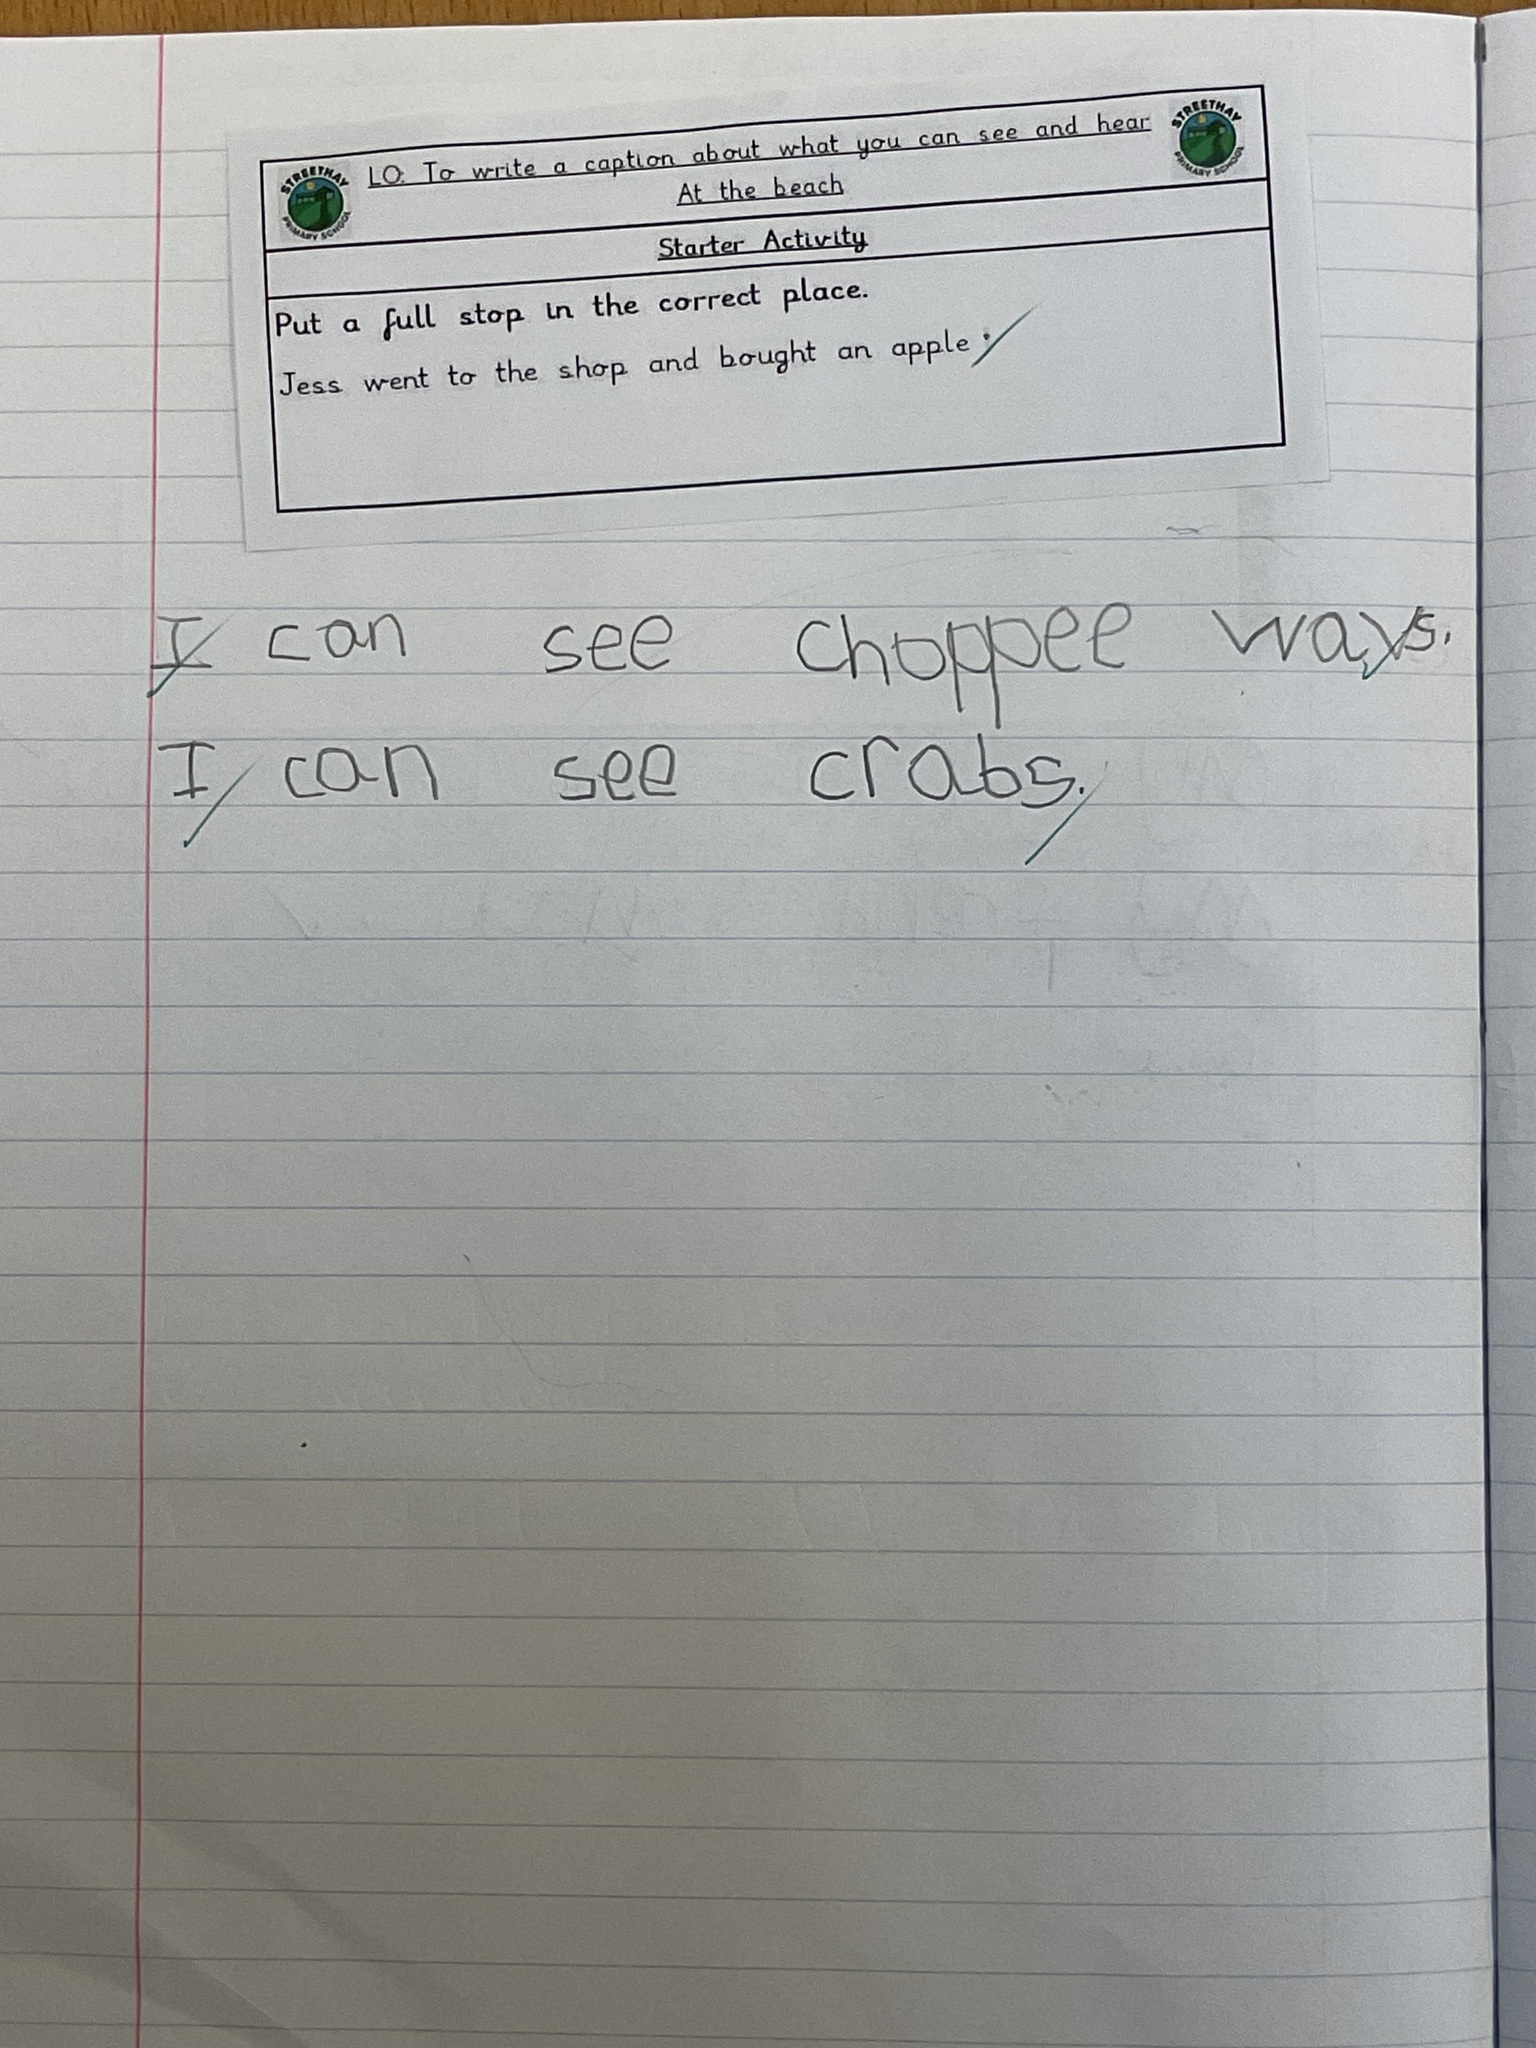 STREETHAY PRIMARY SCHOOL
LO: To write a caption about what you can see and hear
STREETHAY PRIMARY SCHOOL
At the beach
Starter Activity
Put a full stop in the correct place.
Jess went to the shop and bought an apple.
I can see choppee wavs.
I can see crabs.